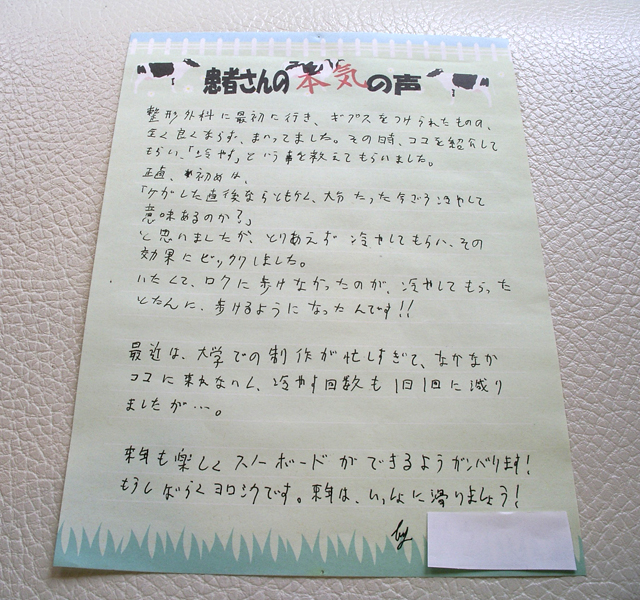 患者さんの本気の声
整形外科に最初に行き、ギプスをつけられたものの、
全く良くならず、まいってました。その時、ココを紹介して
もらい、「冷やす」という事を教えてもらいました。
正直、最初は、
「ケガした直後ならともかく、大分たった今ごろ冷やして
意味あるのか?」
と思いましたが、とりあえず冷やしてもらい、その
効果にビックリしました。
いたくて、ロクに歩けなかったのが、冷やしてもらった
とたんに、歩けるようになったんです!!
最近は、大学での制作が忙しすぎて、なかなか
ココに来れないし、冷やす回数も1日1回に減り
ましたが…。
来年も楽しくスノーボードができるようガンバります!
もうしばらくヨロシクです。来年は、いっしょに滑りましょう!
by